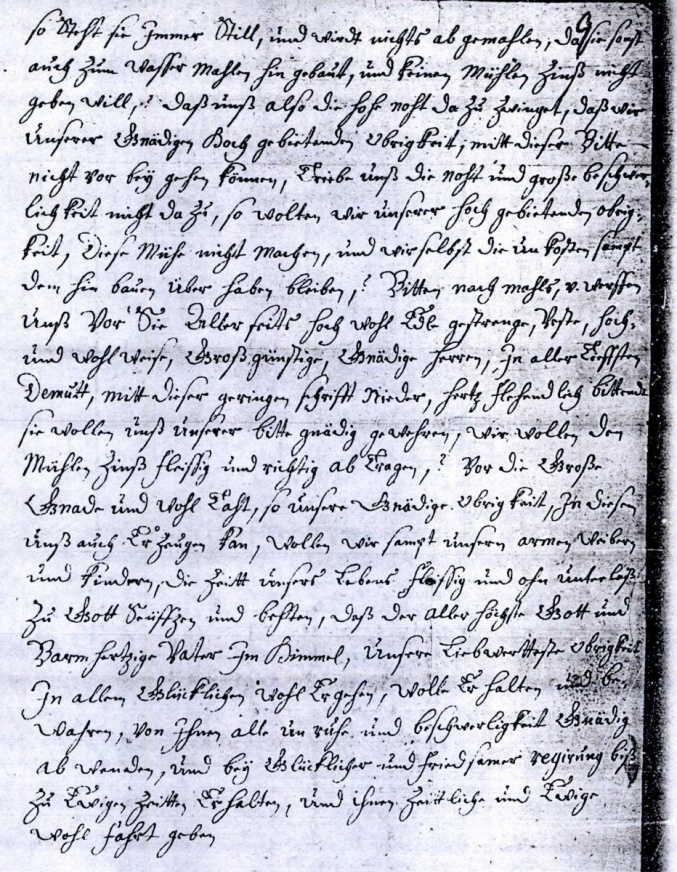 so Steht sie Jmmer Still, und wirdt nichts ab gemahlen, da sie sonst
auch zum Wasser Mahlen hin gebaut, und keinen Mühlen Zinß nicht
geben will, daß unß also die hohe noht da zu zwinget, daß wir
Unserer Gnädigen Hoch gebietenden Obrigkeit, mitt dieser Bitte
nicht vor bey gehen können, Triebe unß die noht und große beschwer-
lich keit nicht da zu, so wolten wir unserer hoch gebietenden obrig-
keit, Diese Mühe nicht machen, und wir selbst die un kosten sampt
dem hin bauen über haben bleiben, Bitten nach mahls, v. werffen
unß Vor Sie Aller seits hoch wohl Edle gestrenge, Veste, hoch-
und wohl weise, Großgünstige, Gnädige Herren, in aller Tieffsten
Demutt, mitt dieser geringen schrifft Nieder, hertz flehendlich bittende
sie wollen unß unserer bitte gnädig gewehren, wir wollen den
Mühlen Zinß fleissig und richtig ab Tragen, Vor die Große
Gnade und wohl Taht, so unsere Gnädige Obrigkeit, Jn diesen
unß auch Er Zeugen kan, wollen wir sampt unsern armen Weibern
und Kindern, die Zeitt unsers Lebens fleissig und ohn unterlaß
Zu Gott Seüffzen und behten, daß der aller höchste Gott und
Barmhertzige Vater Jm Himmel, Unsere Liebwertteste Obrigkeit
Jn allem Glücklichen Wohl Ergehen, wolle Er halten und be-
wahren, von Jhnen alle un ruhe und beschwerligkeit Gnädig
ab wenden, und bey Glücklicher und friedsamer regirung biß
Zu Ewigen Zeitten Er halten, und ihnen Zeittliche und Ewige
wohl fahrt geben